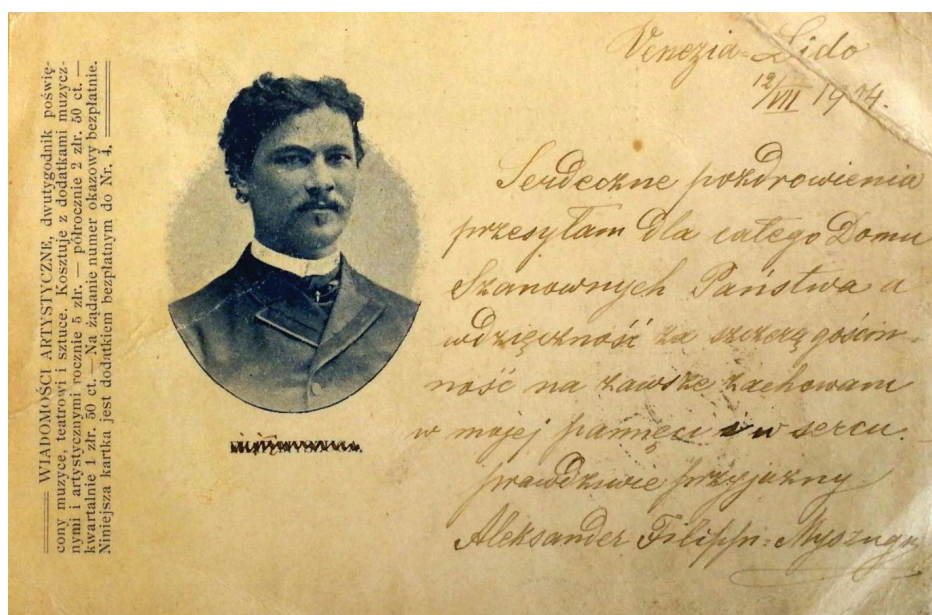 WIADOMOŚCI ARTYSTYCZNE, dwutygodnik poświę-
cony muzyce, teatrowi i sztuce. Kosztuje z dodatkami muzycz-
nymi i artystycznymi rocznie 5 złr. — półrocznie 2 złr. 50 ct. —
kwartalnie 1 złr. 50 ct. — Na żądanie numer okazowy bezpłatnie.
Niniejsza kartka jest dodatkiem bezpłatnym do Nr. 4.
Venezia-Lido
12/VII 1914.
Serdeczne pozdrowienia
przesyłam dla całego Domu
Szanownych Państwa a
wdzięczność za szczerą gościn-
ność na zawsze zachowam
w mojej pamięci i w sercu.
prawdziwie przyjazny
Aleksander Filippi-Myszuga